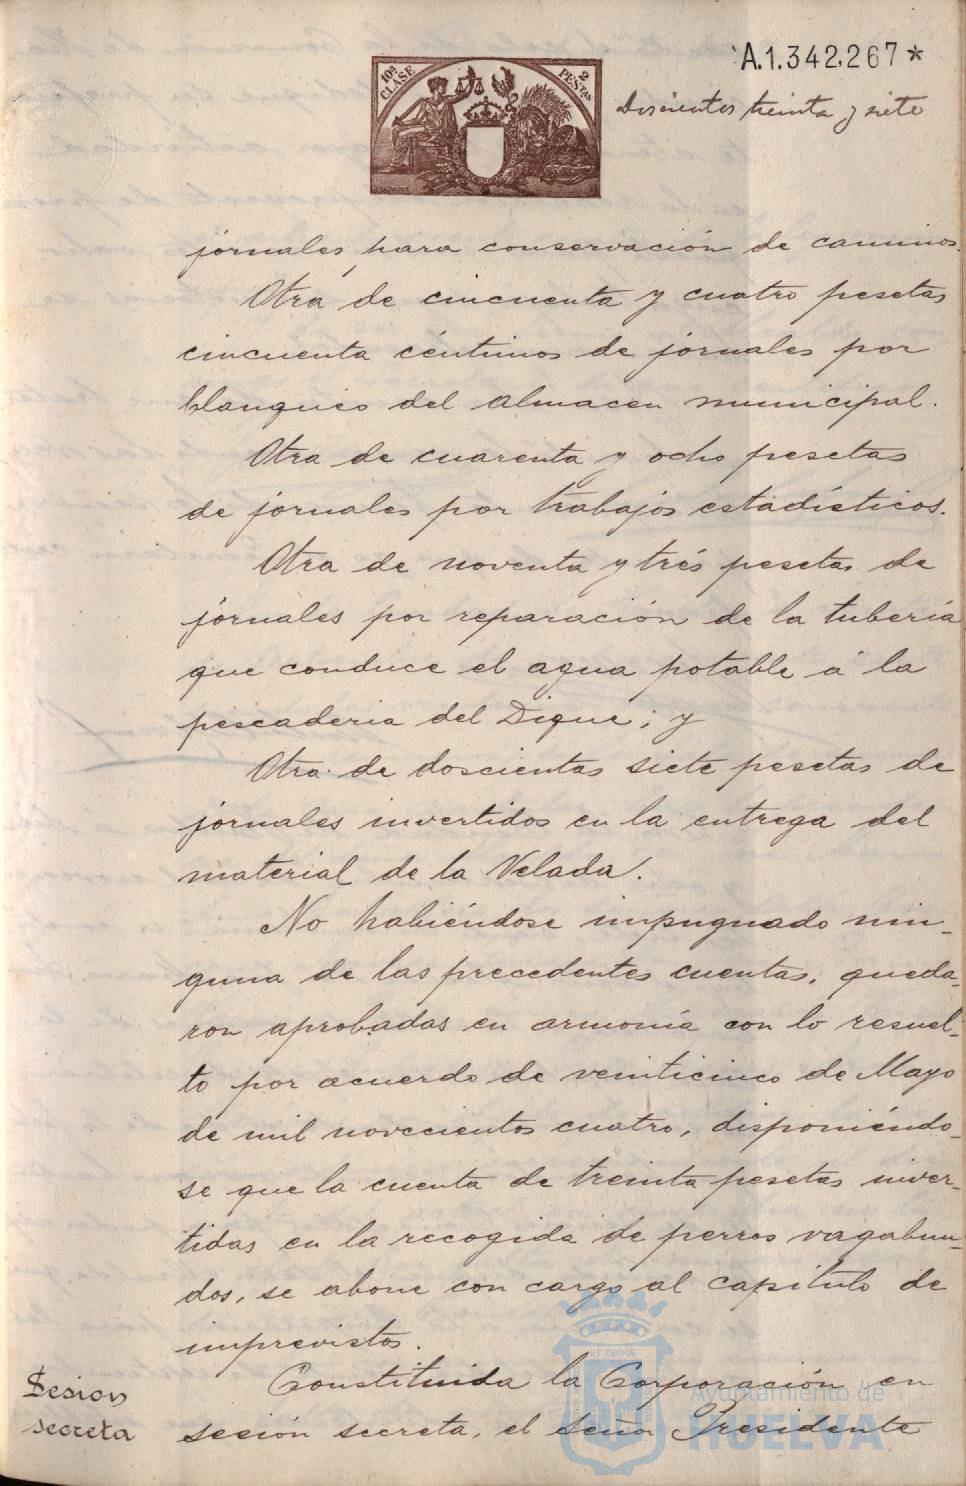 A.1.342.267*
10ª CLASE
2 PESTAS
Doscientos treinta y siete
jornales, para conservación de caminos.
Otra de cincuenta y cuatro pesetas
cincuenta céntimos de jornales por
blanqueo del almacen municipal.
Otra de cuarenta y ocho pesetas
de jornales por trabajos estadísticos.
Otra de noventa y trés pesetas de
jornales por reparación de la tubería
que conduce el agua potable á la
pescaderia del Dique; y
Otra de doscientas siete pesetas de
jornales invertidos en la entrega del
material de la Velada.
No habiéndose impugnado nin-
guna de las precedentes cuentas, queda-
ron aprobadas en armonía con lo resuel-
to por acuerdo de veinticinco de Mayo
de mil novecientos cuatro, disponiéndo-
se que la cuenta de treinta pesetas inver-
tidas en la recogida de perros vagabun-
dos, se abone con cargo al capítulo de
imprevistos.
Sesion
secreta
Constituida la Corporación en
sesión secreta, el Señor Presidente
Ayuntamiento de
HUELVA